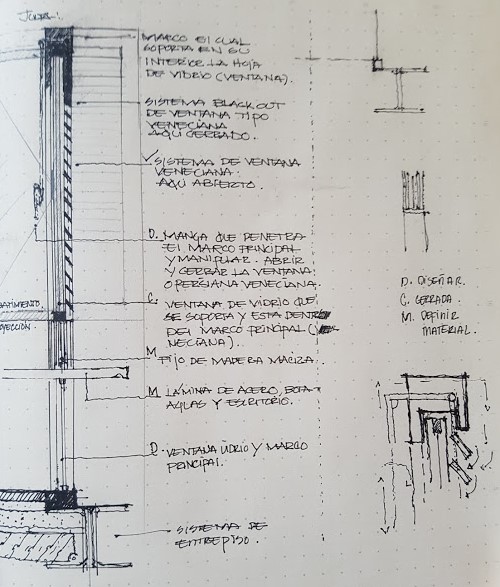 MARCO EL CUAL
SOPORTA EN SU
INTERIOR LA HOJA
DE VIDRIO (VENTANA).
SISTEMA BLACK OUT
DE VENTANA TIPO
VENECIANA
AQUÍ CERRADO.
SISTEMA DE VENTANA
VENECIANA.
AQUÍ ABIERTO.
D. MANGA QUE PENETRA
EL MARCO PRINCIPAL
Y MANIPULAR. ABRIR
Y CERRAR LA VENTANA
O PERSIANA VENECIANA.
C. VENTANA DE VIDRIO QUE
SE SOPORTA Y ESTA DENTRO
DEL MARCO PRINCIPAL (VE
NECIANA).
M. FIJO DE MADERA MACIZA.
M. LÁMINA DE ACERO, BOTA
AGUAS Y ESCRITORIO.
D. VENTANA VIDRIO Y MARCO
PRINCIPAL.
SISTEMA DE
ENTREPISO.
D. DISEÑAR.
C. CERRADA.
M. DEFINIR
MATERIAL.